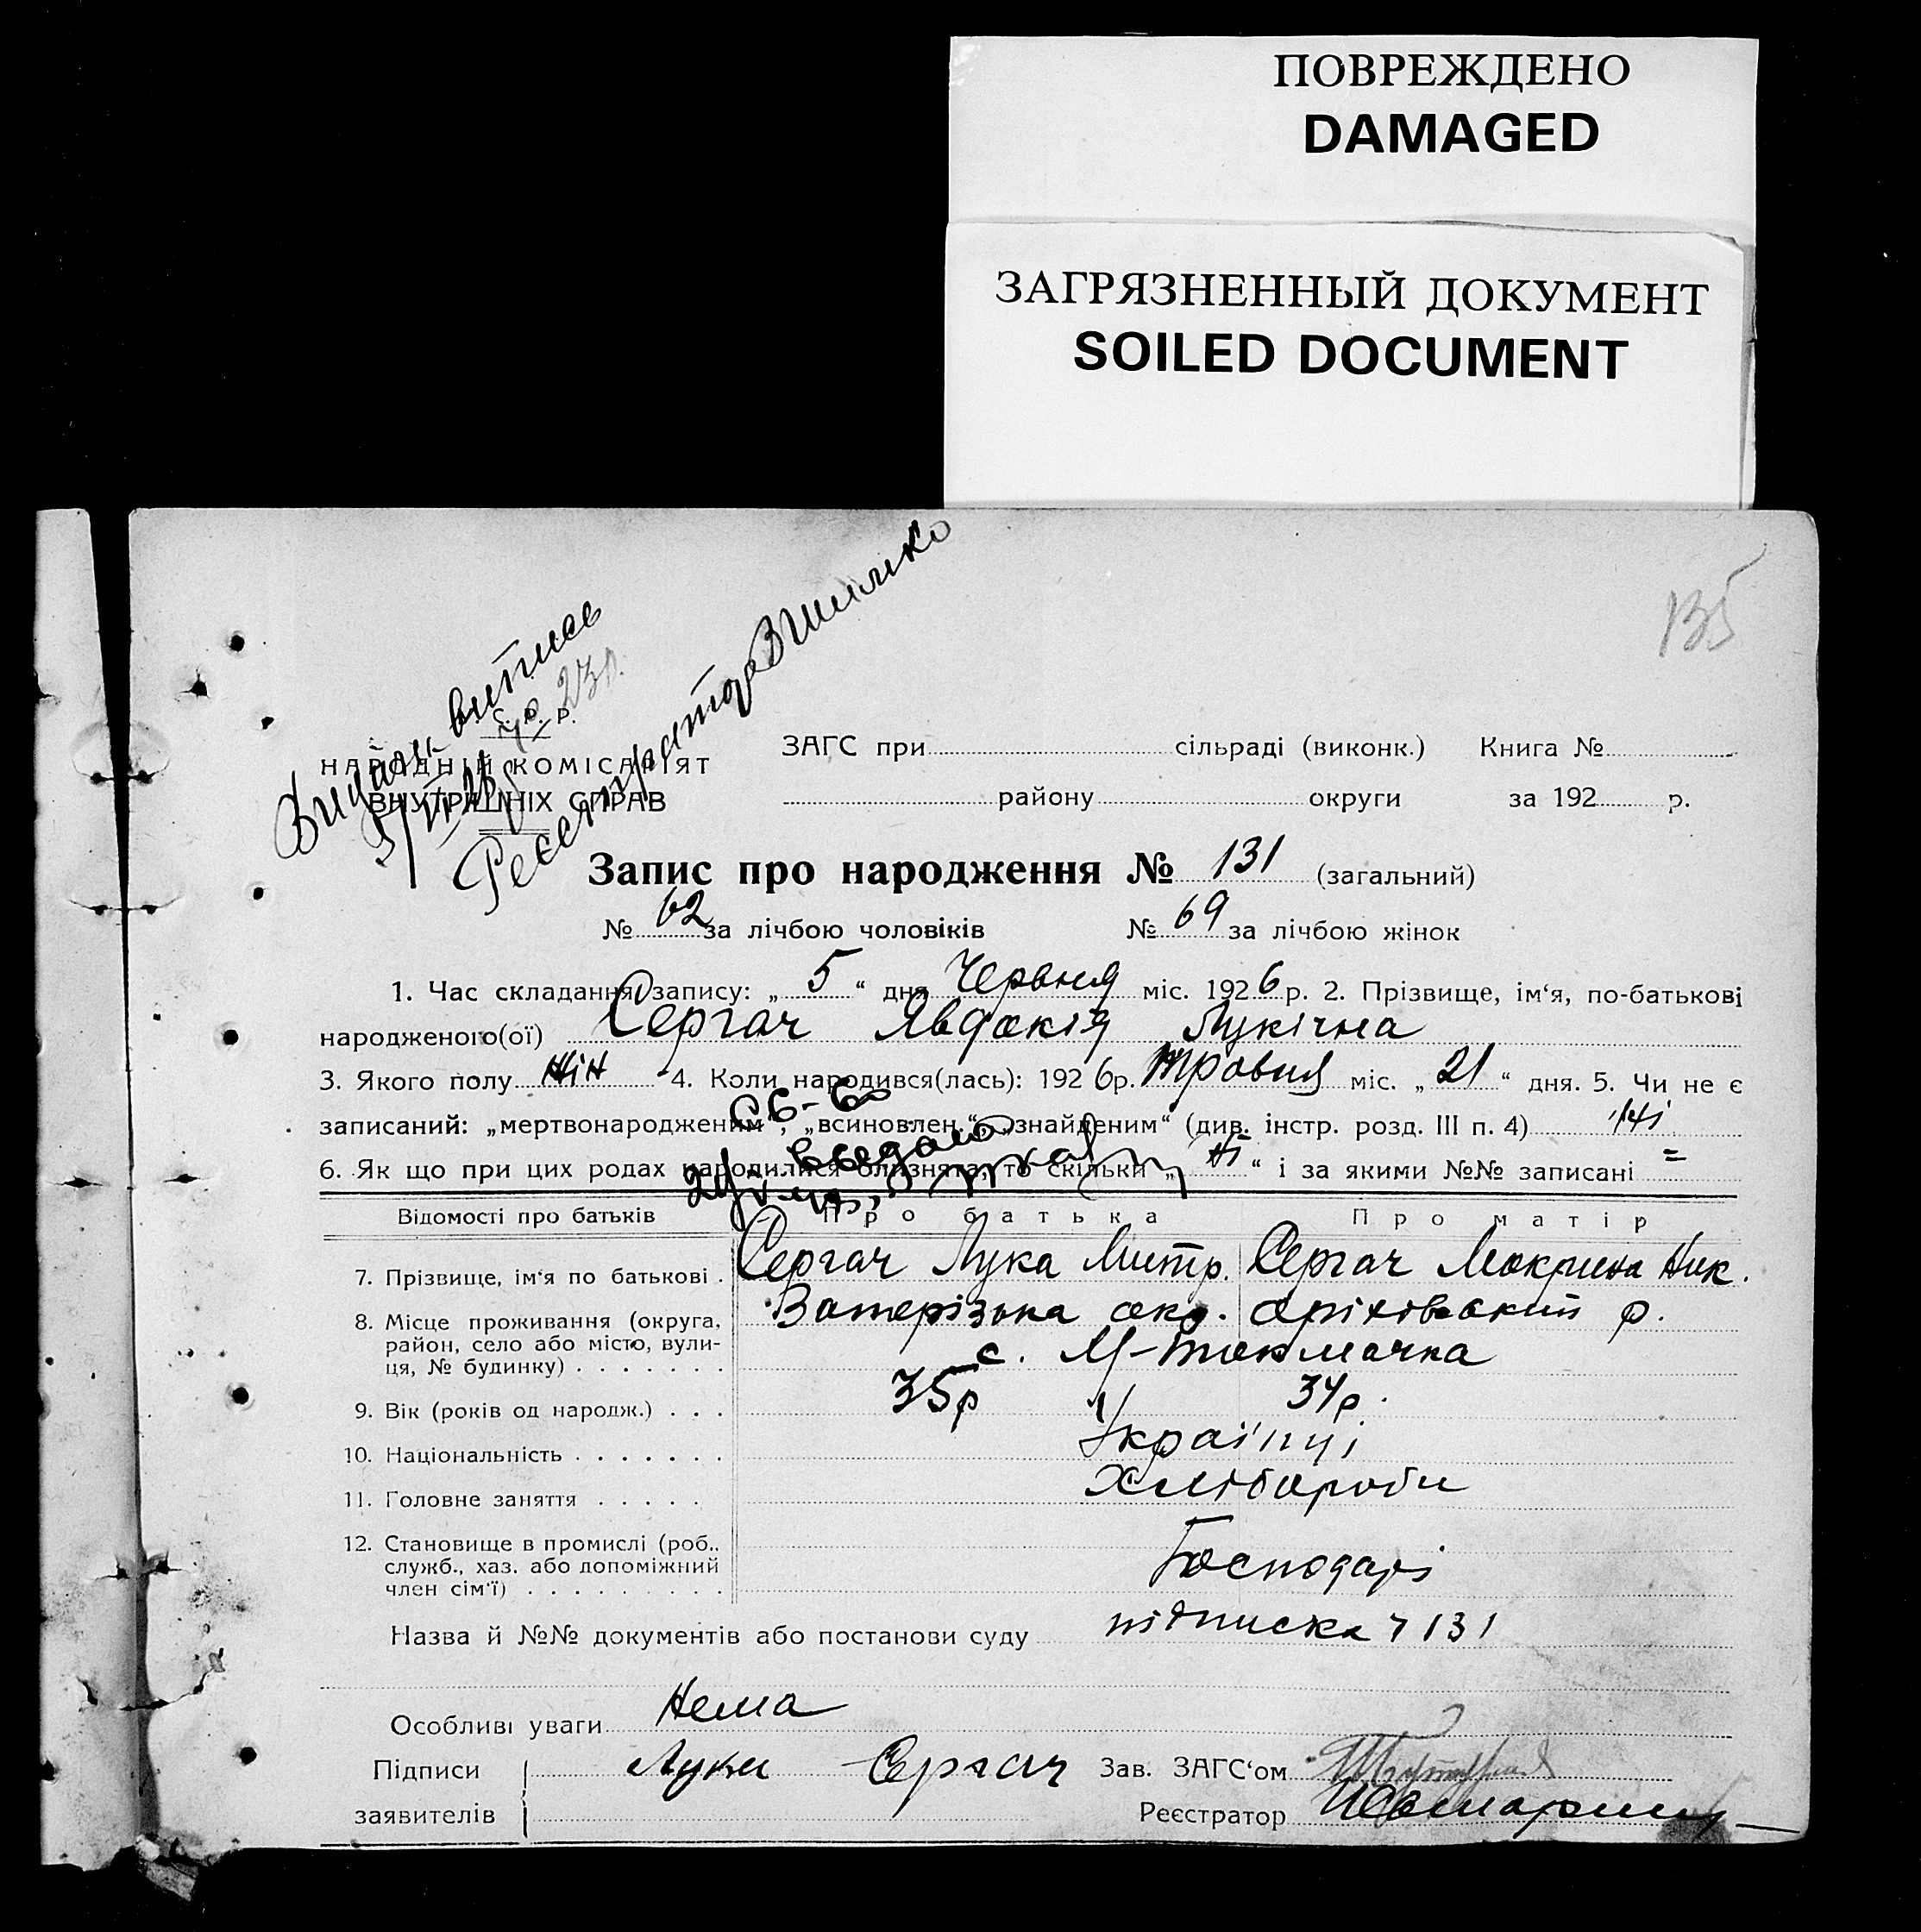 ПОВРЕЖДЕНО
DAMAGED
ЗАГРЯЗНЕННЫЙ ДОКУМЕНТ
SOILED DOCUMENT
135
витпись
С. Р. Р.
НАРОДНІЙ КОМІСАРІЯТ
ВНУТРІШНІХ СПРАВ
Реєстратор
ЗАГС при сільраді (виконк.) Книга №
району округи за 192 р.
Запис про народження № 131 (загальний)
№ 62 за лічбою чоловіків № 69 за лічбою жінок
1. Час складання запису: „ 5 “ дня Червня міс. 1926 р. 2. Прізвище, ім‘я, по-батькові
народженого(ої) Сергач Явдокія Лукічна
3. Якого полу жін 4. Коли народився(лась): 1926 р. травня міс. „ 21 “ дня. 5. Чи не є
записаний: „мертвонародженим“, „всиновлен.“, „знайденим“ (див. інстр. розд. III п. 4) ні
6. Як що при цих родах народилися близнята, то скільки „ ні “ і за якими №№ записані =
Відомості про батьків Про батька Про матір
7. Прізвище, ім‘я по батькові . Сергач Лука Митр. Сергач Мокрина Ник.
8. Місце проживання (округа, район, село або місто, вулиця, № будинку) Запорізька окр. Оріхівський р.
с. М-Токмачка
9. Вік (років од народж.) . . . 35р 34р.
10. Національність . . . . . . . Українці
11. Головне заняття . . . . . Хлібороби
12. Становище в промислі (роб., служб., хаз. або допоміжний член сім‘ї) . . . . . . . . . Господарі
Назва й №№ документів або постанови суду підписка ч 131
Особливі уваги Нема
Підписи Лука Сергач Зав. ЗАГС‘ом
заявителів Реєстратор